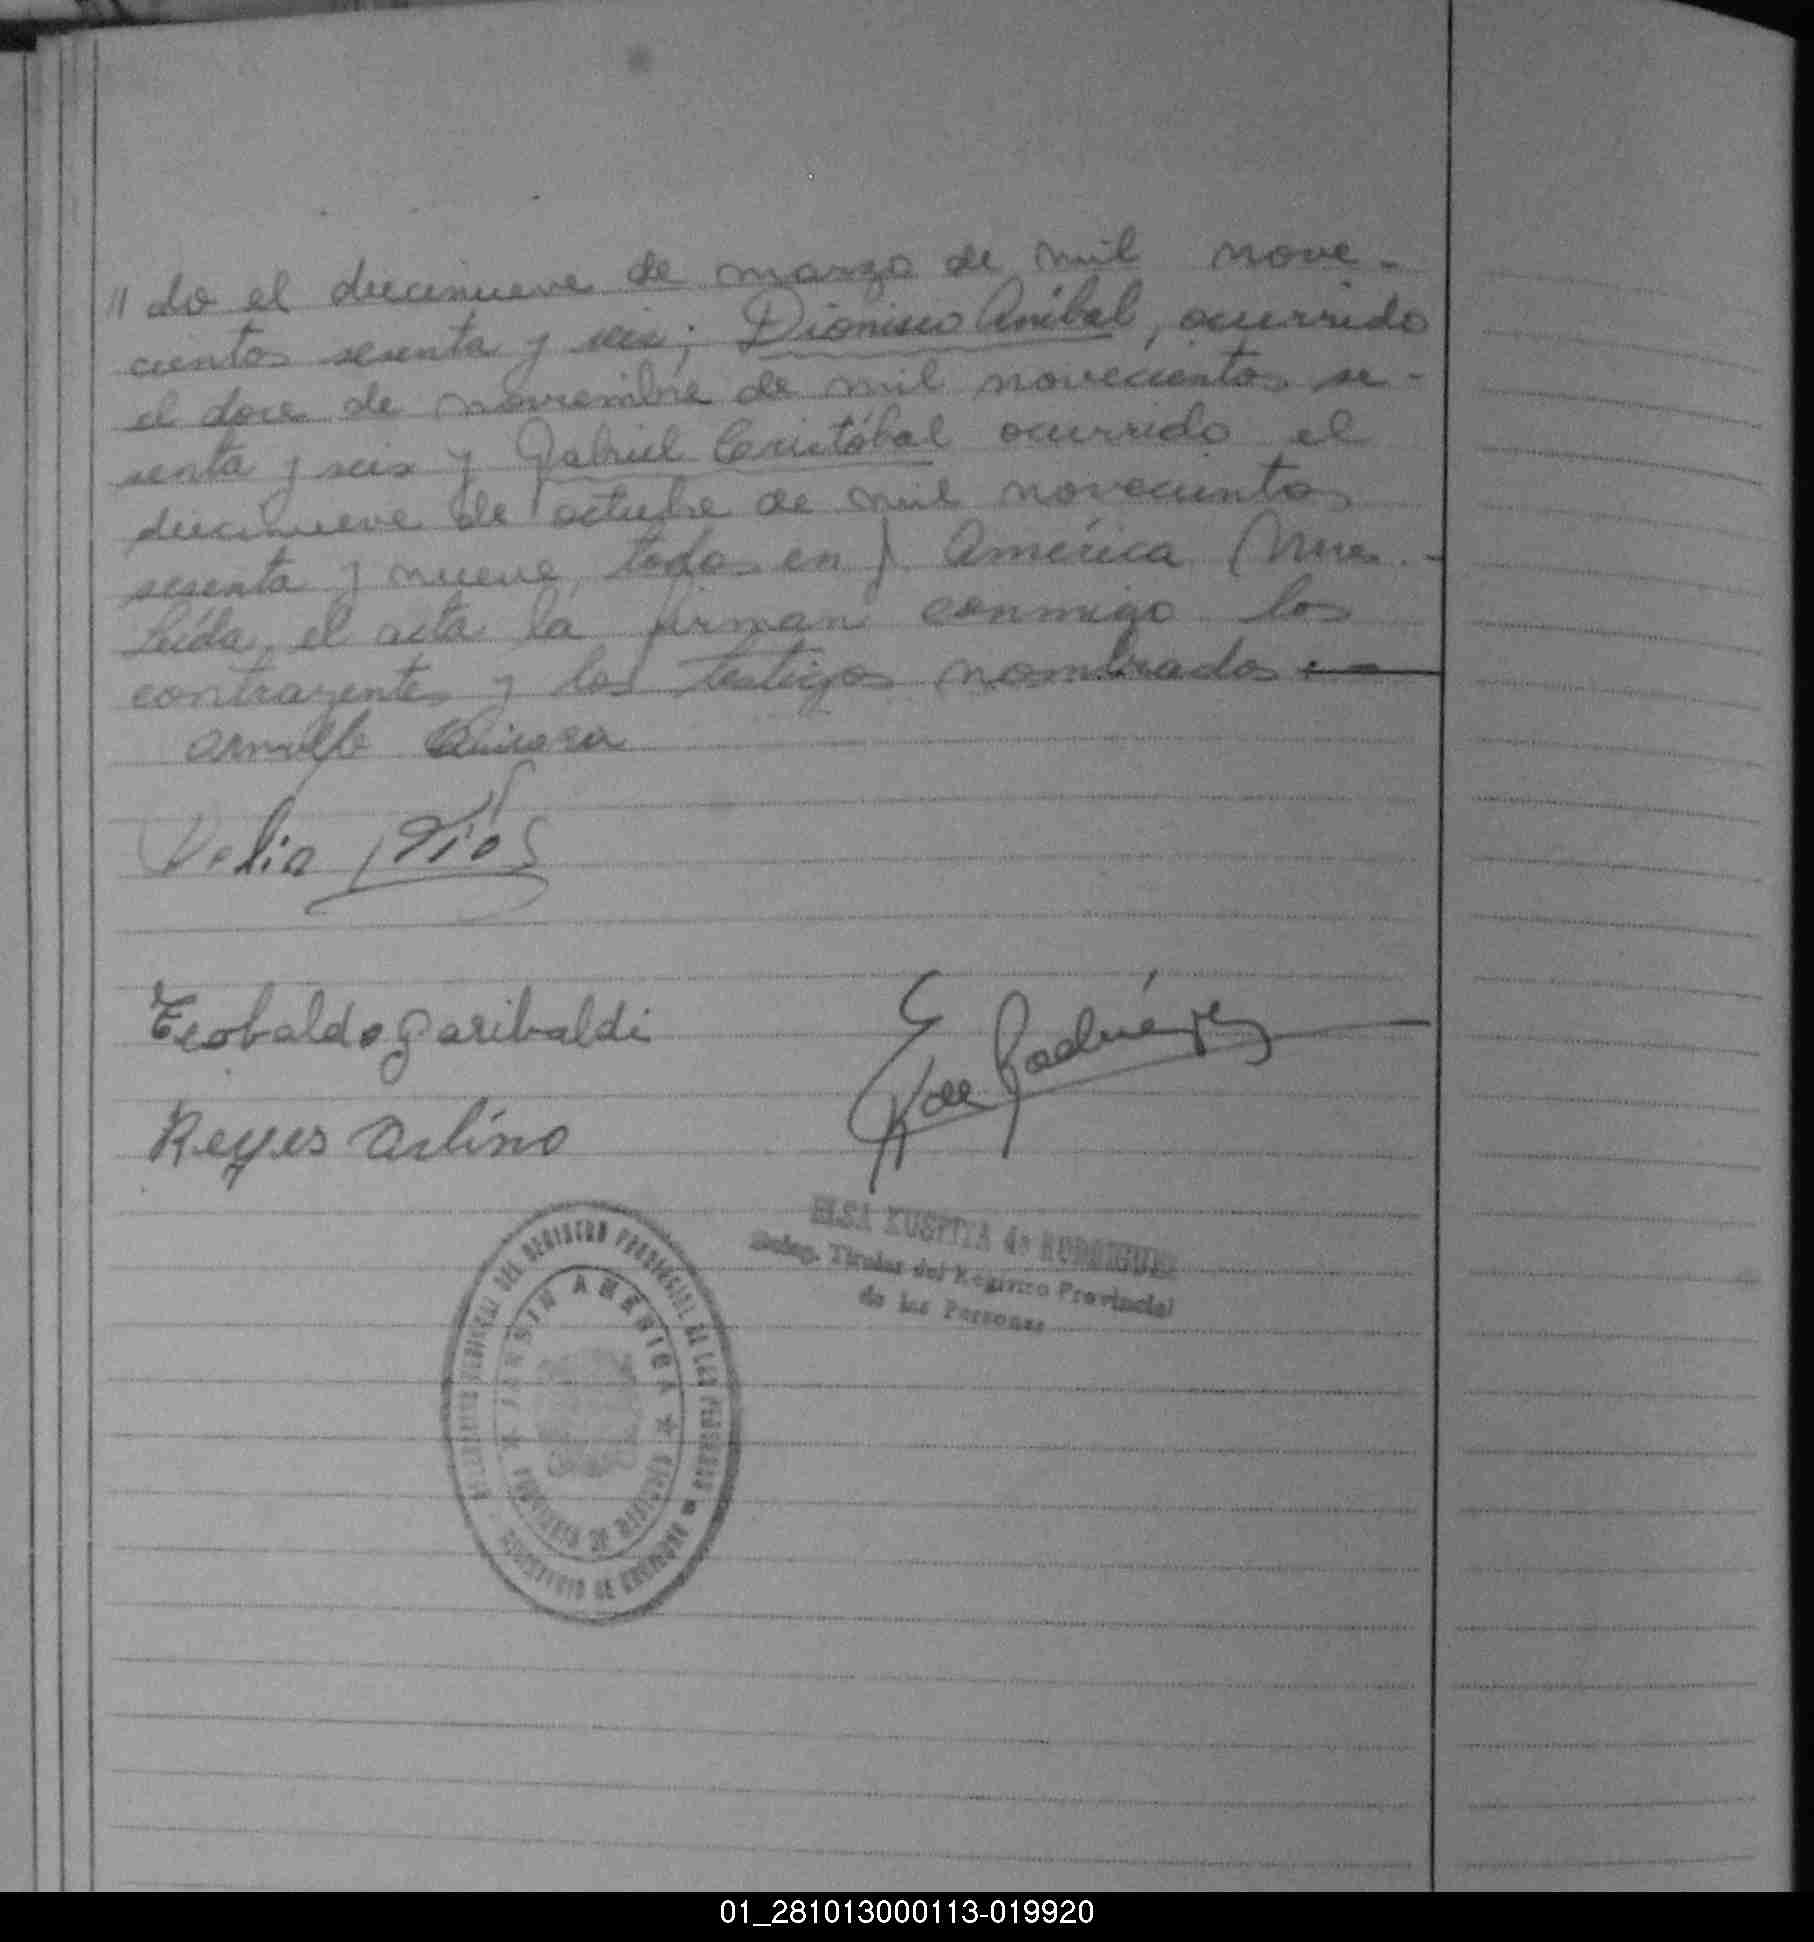 // do el diecinueve de marzo de mil nove-
cientos sesenta y seis; Dionisio Aníbal, ocurrido
el doce de noviembre de mil novecientos se-
senta y seis y Gabriel Cristóbal ocurrido el
diecinueve de octubre de mil novecientos
sesenta y nueve, todos en J. América (Mnes.-
Leída el acta la firman conmigo los
contrayentes y los testigos nombrados
Arnulfo
Delia Ríos
Teobaldo Garibaldi
Reyes Arlino
E K de Rodríguez
ELSA KUSPITA de RODRIGUEZ
Deleg. Titular del Registro Provincial
de las Personas
DEL REGISTRO PROVINCIAL DE LAS PERSONAS
JARDIN AMERICA
PROVINCIA DE MISIONES
MINISTERIO DE GOBIERNO
01_281013000113-019920